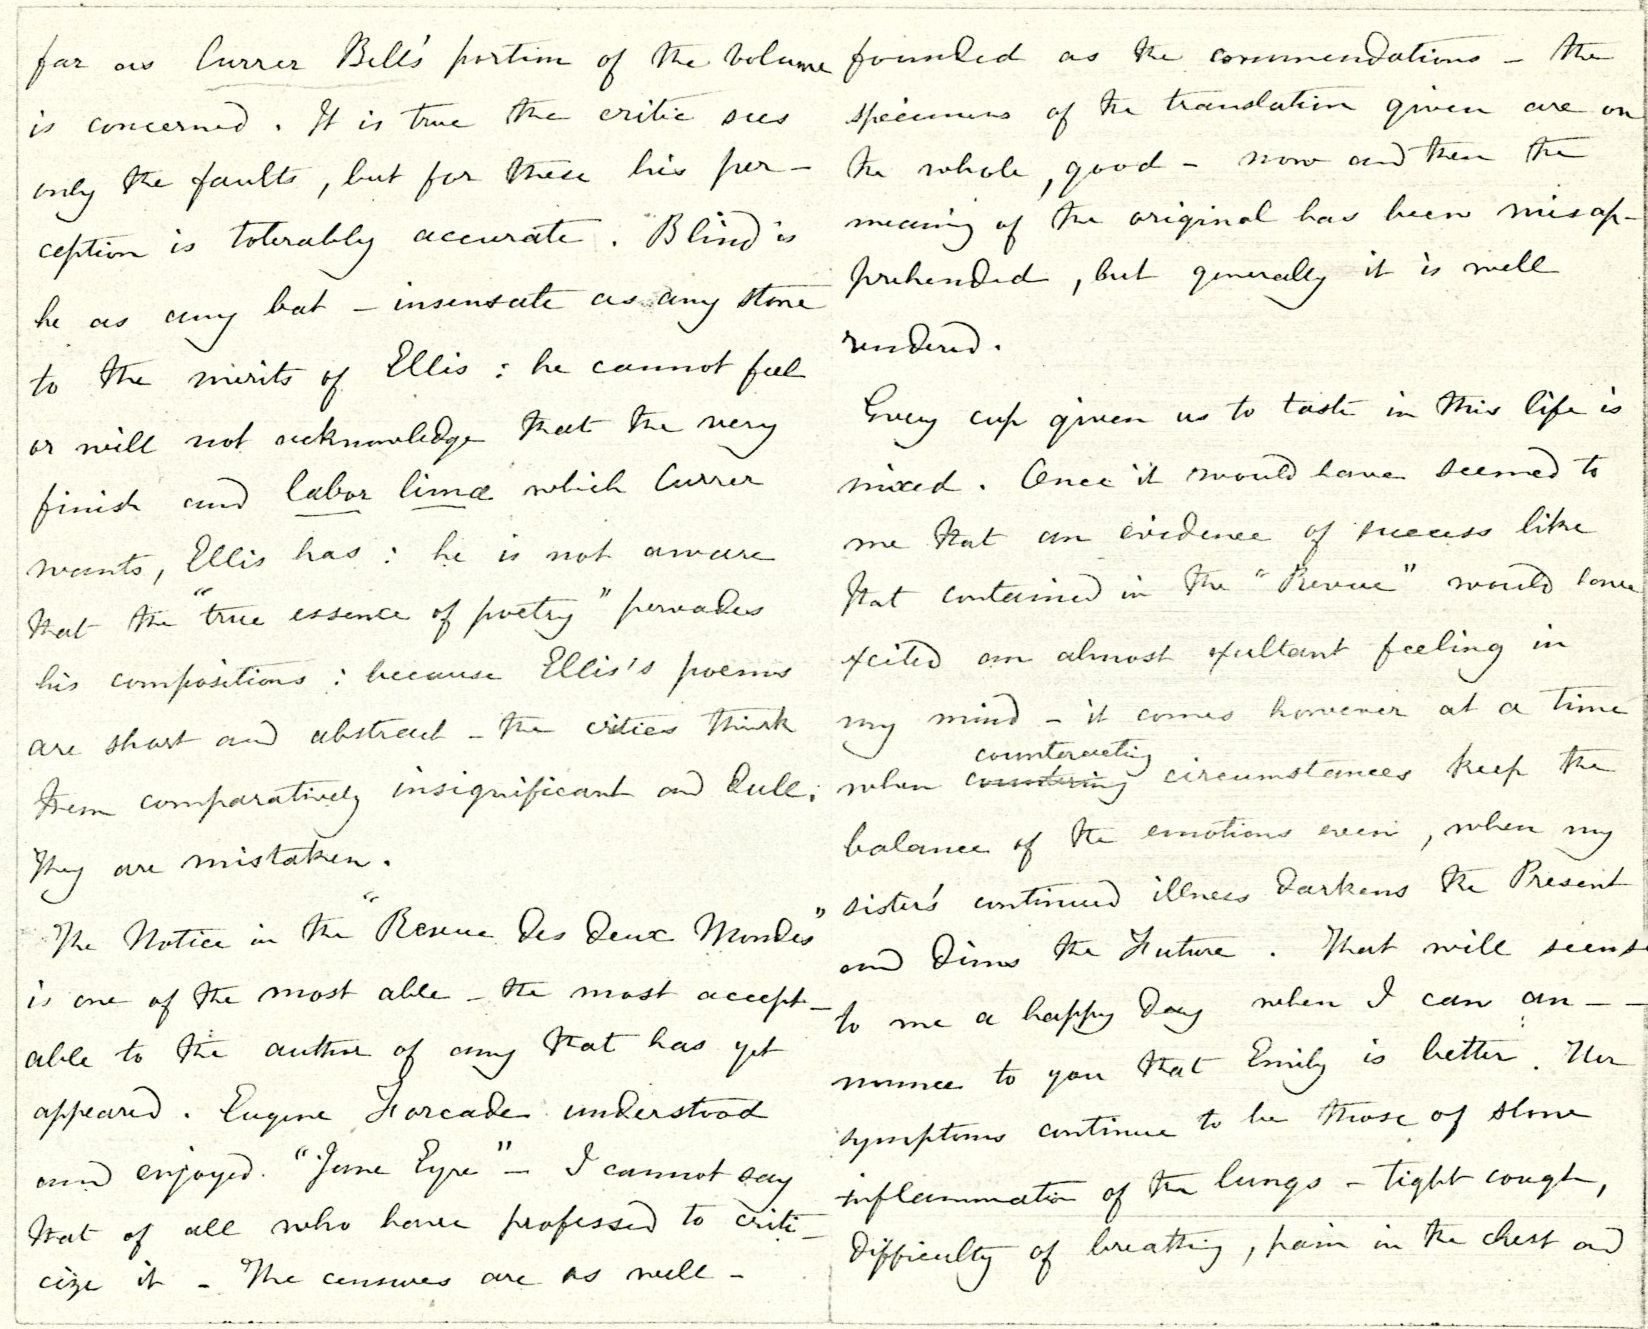 far as Currer Bell's portion of the volume
is concerned. It is true the critic sees
only the faults, but for these his per-
ception is tolerably accurate. Blind is
he as any bat - insensate as any stone
to the merits of Ellis: he cannot feel
or will not acknowledge that the very
finish and labor limæ which Currer
wants, Ellis has: he is not aware
that the "true essence of poetry" pervades
his compositions: because Ellis's poems
are short and abstract - the critics think
them comparatively insignificant and dull;
They are mistaken.
The Notice in the "Revue des deux Mondes"
is one of the most able - the most accept-
able to the author of any that has yet
appeared. Eugène Forcade understood
and enjoyed "Jane Eyre" - I cannot say
that of all who have professed to criti-
cize it - The censures are as well-
founded as the commendations - the
specimens of the translation given are on
the whole, good - now and then the
meaning of the original has been misap-
prehended, but generally it is well
rendered.
Every cup given us to taste in this life is
mixed. Once it would have seemed to
me that an evidence of success like
that contained in the "Revue" would have
excited an almost exultant feeling in
my mind - it comes however at a time
when countering counteracting circumstances keep the
balance of the emotions even, when my
sister's continued illness darkens the Present
and dims the Future. That will seem
to me a happy day when I can an--
nounce to you that Emily is better. Her
symptoms continue to be those of slow
inflammation of the lungs - tight cough,
difficulty of breathing, pain in the chest and